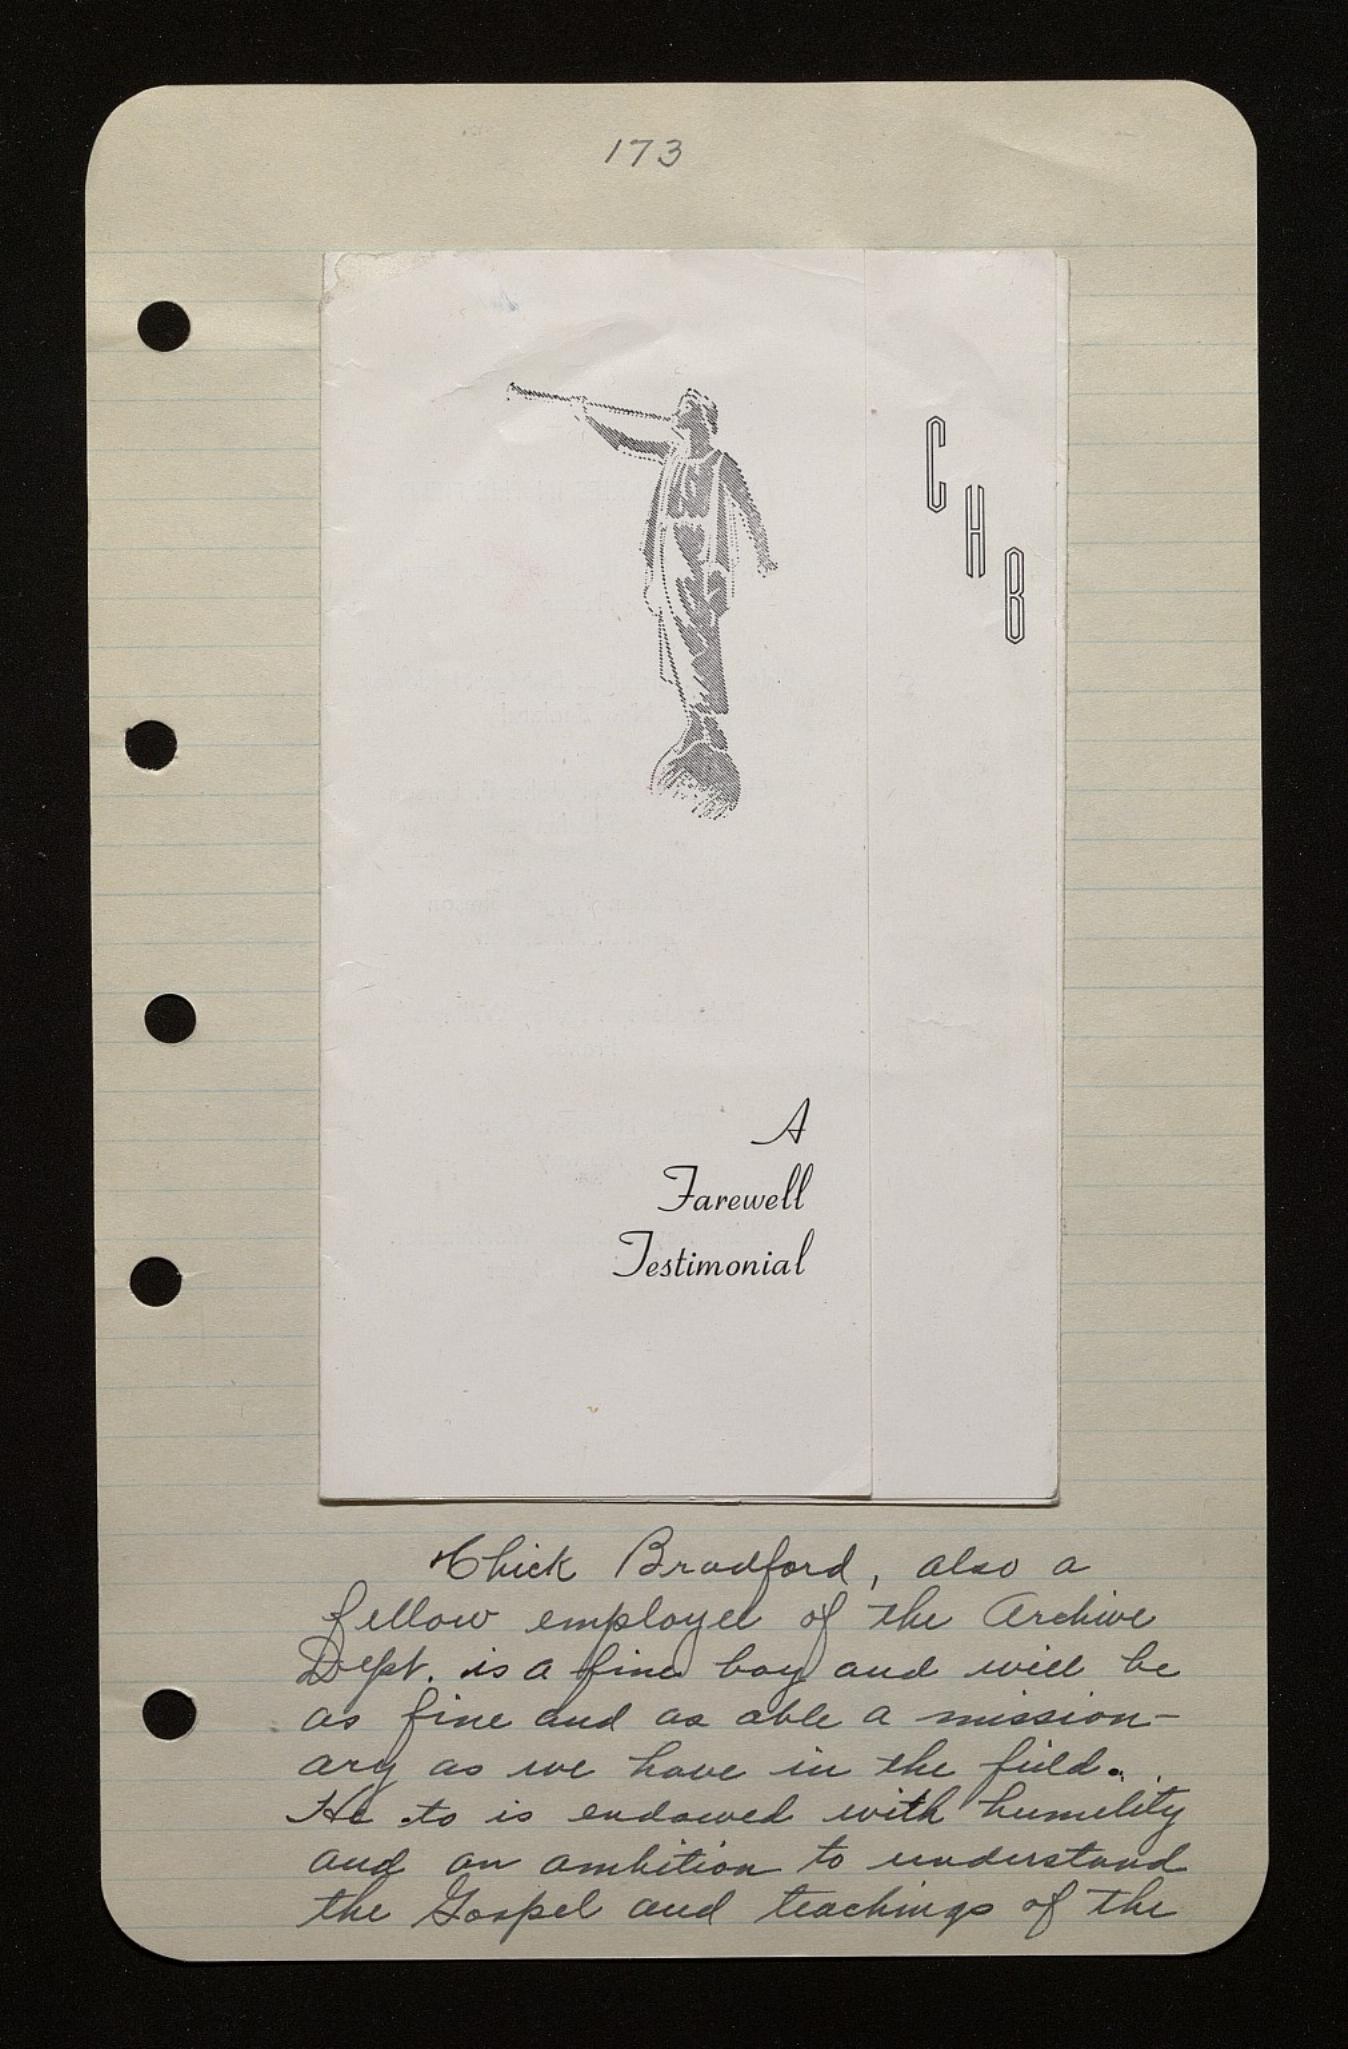 173
C
H
B
A
Farewell
Testimonial
Chick Bradford, also a
fellow employee of the Archive
Dept. is a fine boy and will be
as fine and as able a mission-
ary as we have in the field.
He to is endowed with humility
and an ambition to understand
the Gospel and teachings of the